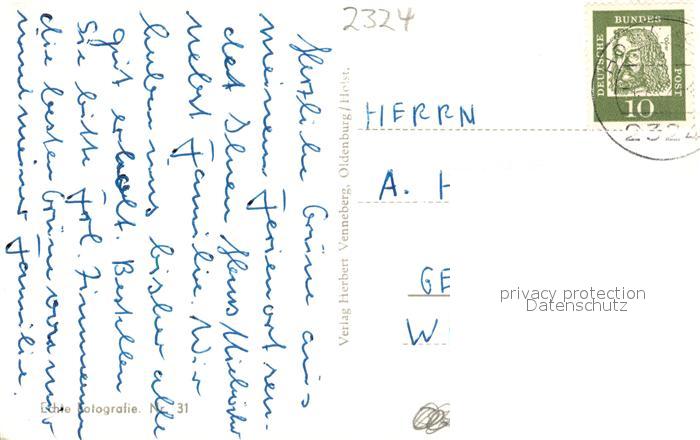 Herzliche Grüße aus
meinem Ferienort sen-
det Ihnen Haus
nebst Familie. Wir
haben uns bisher alle
gut erholt. Bestellen
Sie bitte Frl. Zimmermann
die besten Grüße von mir
und meiner Familie.
Echte Fotografie. Nr. 31
Verlag Herbert Venneberg, Oldenburg/Holst.
2324
DEUTSCHE
BUNDES
POST
10
2324
HERRN
A. H
GE
W
privacy protection
Datenschutz